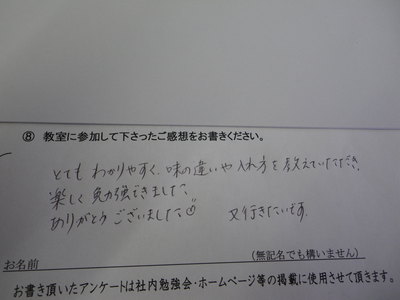 ⑧ 教室に参加して下さったご感想をお書きください。
とても わかりやすく、味の違いや 入れ方を教えていただき、
楽しく 勉強できました。
ありがとう ございました。 又行きたいです。
お名前 (無記名でも構いません)
お書き頂いたアンケートは社内勉強会・ホームページ等の掲載に使用させて頂きます。